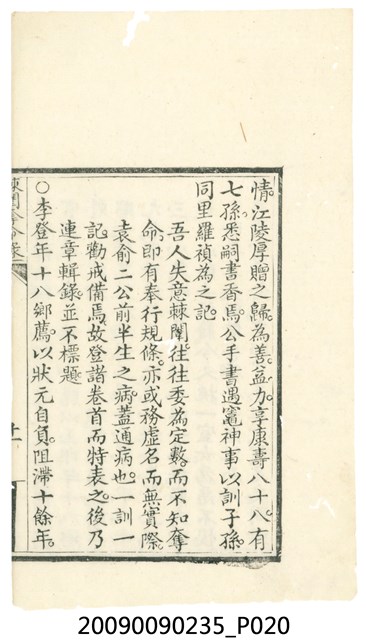 情。江陵厚贈之歸。為善益力。享康壽八十八。有
七孫。悉嗣書香焉。公手書遇竈神事。以訓子孫。
同里羅禎為之記。
吾人失意棘闈。往往委為定數。而不知奪
命。即有奉行規條。亦或務虛名而無實際。
袁俞二公前半生之病。蓋通病也。一訓一
記。勸戒備焉。故登諸卷首而特表之。後乃
連章輯錄。並不標題
○李登年十八鄉薦。以狀元自負。阻滯十餘年。
20090090235_P020